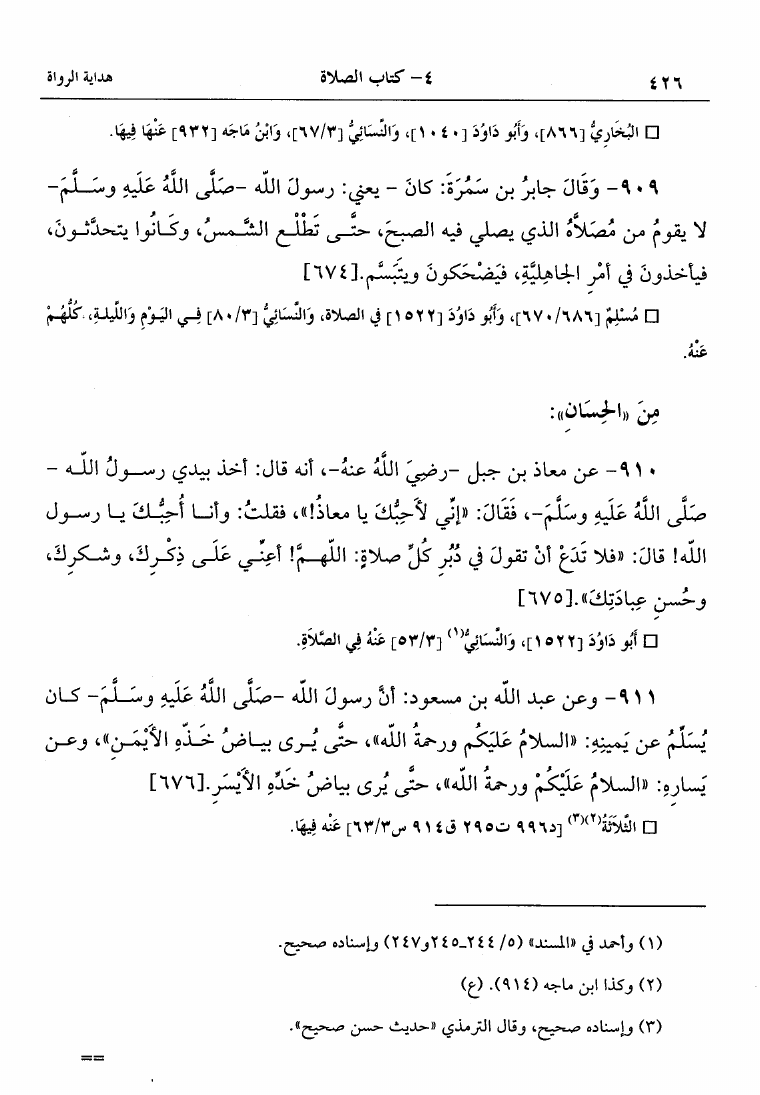 ٤٢٦ ٤- كتاب الصلاة هداية الرواة
□ البُخَارِيُّ [٨٦٦]، وَأَبُو دَاوُدَ [١٠٤٠]، وَالنَّسَائِيُّ [٦٧/٣]، وَابْنُ مَاجَه [٩٣٢] عَنْهَا فِيهَا.
٩٠٩- وَقَالَ جابرُ بن سَمُرَةَ: كانَ - يعني: رسولَ الله -صَلَّى اللَّهُ عَلَيهِ وسَـلَّمَ-
لا يقومُ من مُصَلاَّهُ الذي يصلي فيه الصبحَ، حتَّـى تَطْلُـع الشَّـمسُ، وكَـانُوا يتحدَّثـونَ،
فيأخذونَ في أَمْرِ الجاهليَّةِ، فَيَضْحَكونَ ويتَبَسَّم.[٦٧٤]
□ مُسْلِمٌ [٦٧٠/٦٨٦]، وَأَبُو دَاوُدَ [١٥٢٢] في الصلاة، وَالنَّسَائِيُّ [٨٠/٣] فِـي اليَـوْمِ وَاللَّيلـةِ، كُلُّهُـمْ
عَنْهُ.
مِنَ «الحِسَانِ»:
٩١٠- عن معاذ بن جبل -رضيَ اللَّهُ عنهُ-، أنه قال: أخذ بيدي رسـولُ اللَّـه -
صَلَّى اللهُ عَلَيهِ وسَلَّمَ-، فَقَالَ: «إنِّي لأُحِبُّكَ يا معاذُ!»، فقلتُ: وأنـا أُحِبُّـكَ يـا رسـول
الله! قالَ: «فلا تَدَعْ أنْ تقولَ في دُبُرِ كُلِّ صلاةٍ: اللَّهـمَّ! أعِنِّـي عَلَـى ذِكْـرِكَ، وشـكرِكَ،
وحُسنِ عِبادَتِكَ».[٦٧٥]
□ أَبُو دَاوُدَ [١٥٢٢]، وَالنَّسَائِيُّ(١) [٥٣/٣] عَنْهُ فِي الصَّلاَةِ.
٩١١- وعن عبد الله بن مسعود: أنَّ رسولَ الله -صَلَّى اللَّهُ عَلَيهِ وسَـلَّمَ- كـان
يُسَلِّمُ عن يَمينِهِ: «السلامُ عَليَكُم ورحمةُ الله»، حتَّى يُـرى بيـاضُ خَـدِّهِ الأَيْمَـنِ»، وعـن
يَسارِهِ: «السلامُ عَلَيْكُمْ ورحمةُ الله»، حتَّى يُرى بياضُ خَدِّهِ الأَيْسَرِ.[٦٧٦]
□ الثَّلَاثَةُ(٢)(٣) [د٩٩٦ ت٢٩٥ ق٩١٤ س٦٣/٣] عَنْه فِيهَا.
(١) وأحمد في «المسند» (٥/ ٢٤٤ـ٢٤٥و٢٤٧) وإسناده صحيح.
(٢) وكذا ابن ماجه (٩١٤). (ع)
(٣) وإسناده صحيح، وقال الترمذي «حديث حسن صحيح».
==